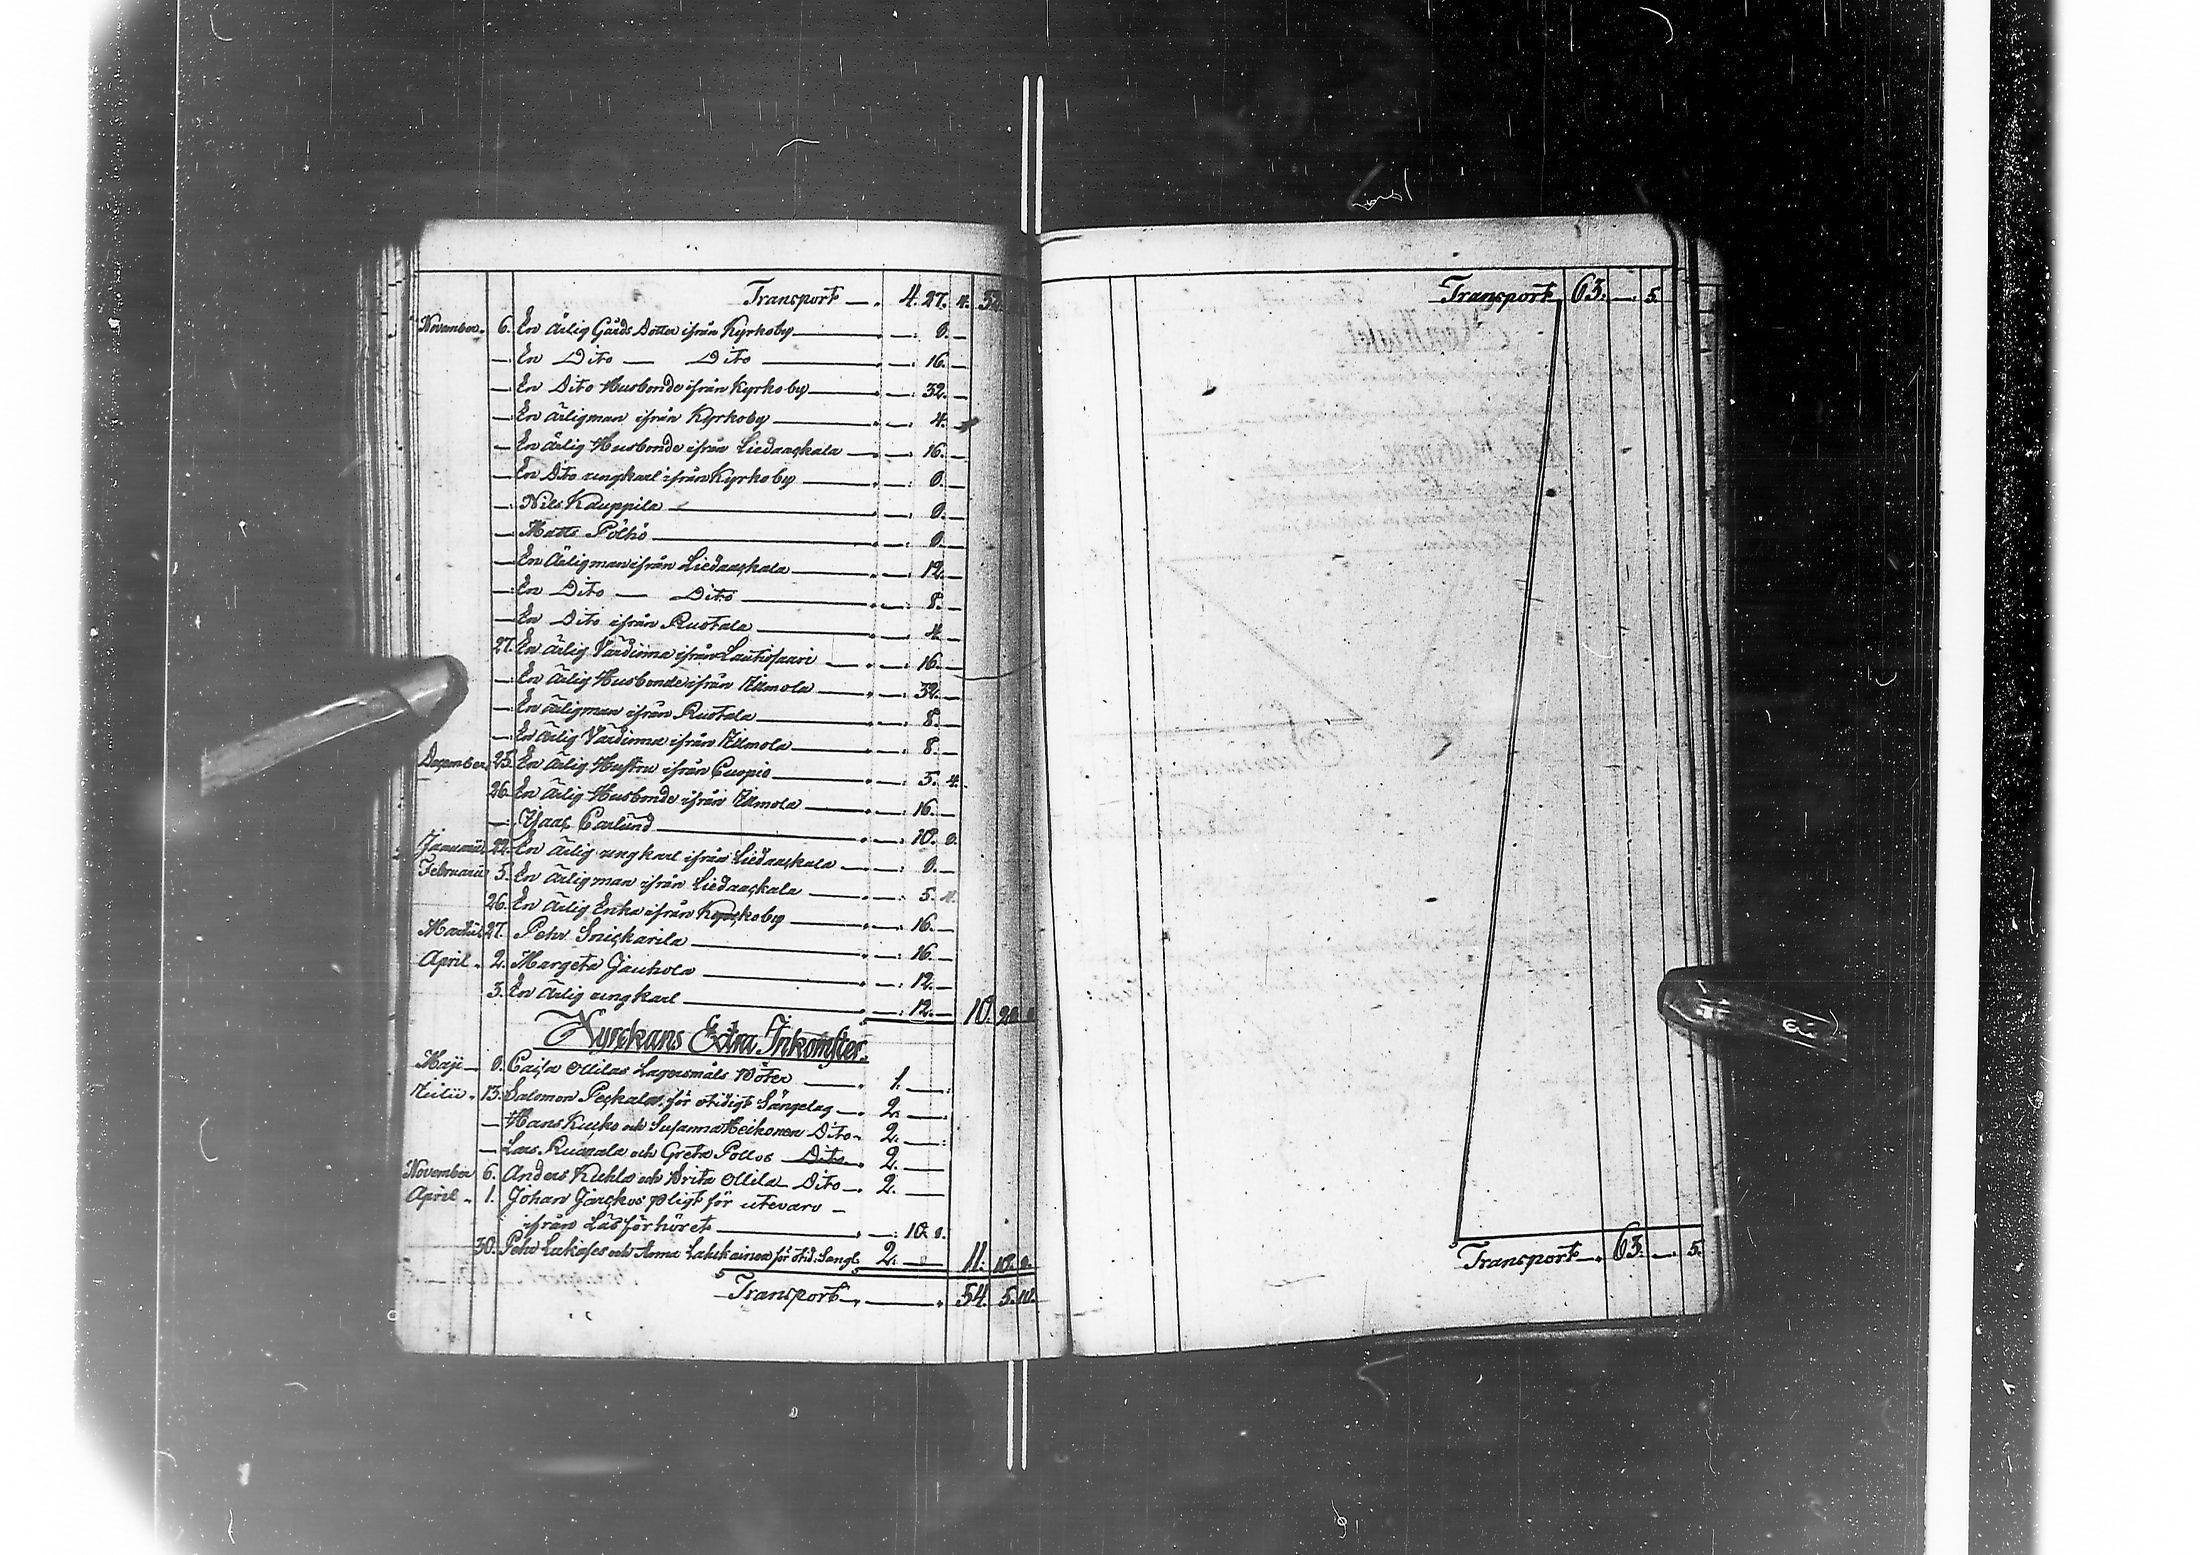 Transport 4. 27. 4. 32
November. 6. En ärlig Gårds Dotter ifrån Kyrkoby 0.
En Dito Dito 16.
En Dito Husbonde ifrån Kyrkoby 32.
En ärligman ifrån Kyrkoby 4.
En ärlig Husbonde ifrån Liedaaskala 16.
En Dito ungkarl ifrån Kyrkoby 0.
Nils Kauppila 0.
Matts Pölhö 0.
En Ärligman ifrån Liedaaskala 12.
En Dito Dito 8.
En Dito ifrån Ruotala 4.
27. En ärlig Värdinna ifrån Lautiosaari 16.
En ärlig Husbonde ifrån Ilmola 32.
En ärligman ifrån Ruotala 8.
En ärlig Värdinna ifrån Ilmola 8.
December 25. En ärlig Hustru ifrån Cuopio 5. 4.
26. En ärlig Husbonde ifrån Ilmola 16.
Isaac Carlund 10. 0.
Januarii 22. En ärlig ungkarl ifrån Liedaaskala 0.
Februarii 5. En ärligman ifrån Liedaaskala 5. 4.
26. En ärlig Enka ifrån Kyrckoby 16.
Martii 27. Pehr Snickarila 16.
April 2. Margeta Jauhola 12.
3. En ärlig ungkarl 12. 10. 20.
Kyrckans Extra Inkomster.
Maji 0. Caisa Ollilas Lagersmåls Böter 1.
13. Salomon Peckalas för otidigt Sängelag 2.
Hans Kucko och Susanna Heikonen Dito 2.
Lars Ruopala och Greta Pollos Dito 2.
November 6. Anders Kuhla och Brita Ollila Dito 2.
April 1. Johan Jarckos pligt för utevaro
ifrån Läsförhöret 10. 0.
30. Pehr Lukases och Anna Lakkainen för otid. Sängl. 2. 11. 10. 0.
Transport 54. 5. 10.
Transport 63. 5.
Transport 63. 5.